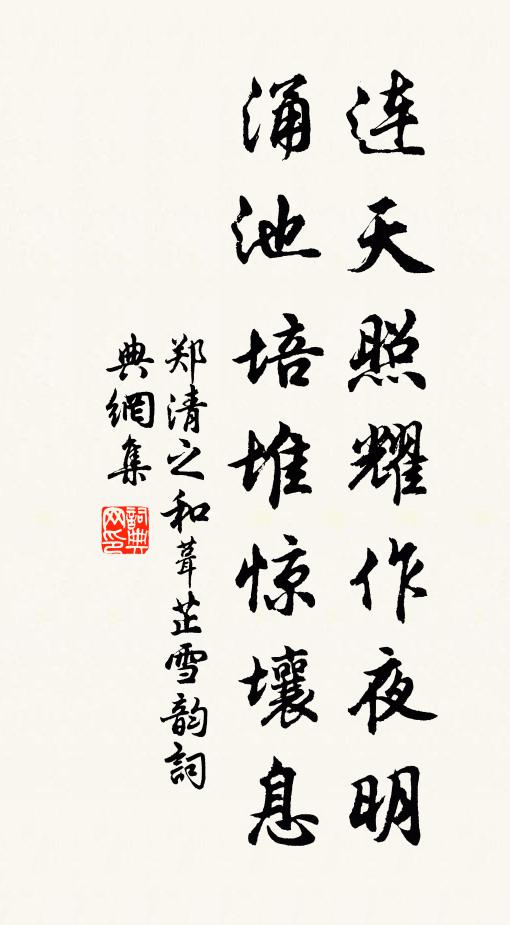 连天照耀作夜明
涌池培堆惊壤息
郑清之和葺芷雪韵詞
典網集
詞典
网印